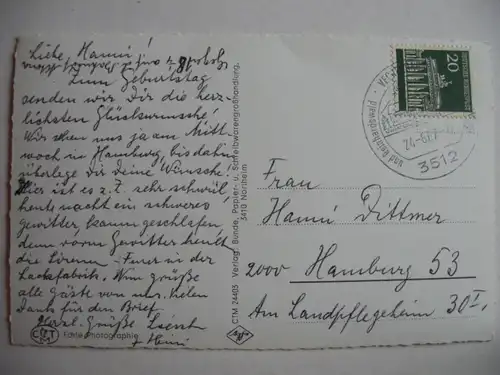 Liebe Hanni!
Zum Geburtstag
senden wir Dir die herz-
lichsten Glückwünsche!
Wir sehen uns ja am Mitt-
woch in Hamburg, bis dahin
überlege Dir Deine Wünsche!
Hier ist es z. Z. sehr schwül,
heute nacht ein schweres
Gewitter, kaum geschlafen,
denn vorm Gewitter heulte
die Sirenen - Feuer in der
Lackfabrik. Nun grüße
alle Gäste von uns, vielen
Dank für den Brief.
Herzl. Grüße
+ Heini
CTM
Echte Photographie
CTM 24403 Verlag: Bunde, Papier- u. Schreibwarengroßhandlung,
3410 Northeim
Agfa
20
24.-6.
3512
Frau
Hanni Dittmer
2000 Hamburg 53
Am Landpflegeheim 30